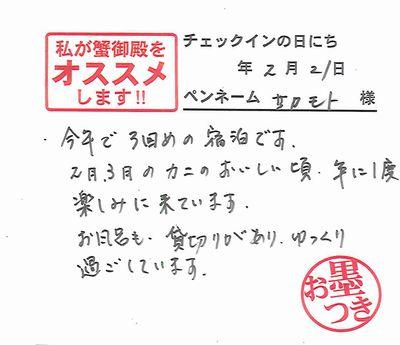 私が蟹御殿を
オススメ
します!!
チェックインの日にち
年 2月21日
ペンネーム サカモト 様
・今年で3回めの宿泊です.
2月.3月のカニのおいしい頃.年に1度
楽しみに来ています.
お風呂も.貸切りがあり.ゆっくり
過ごしています.
お墨つき